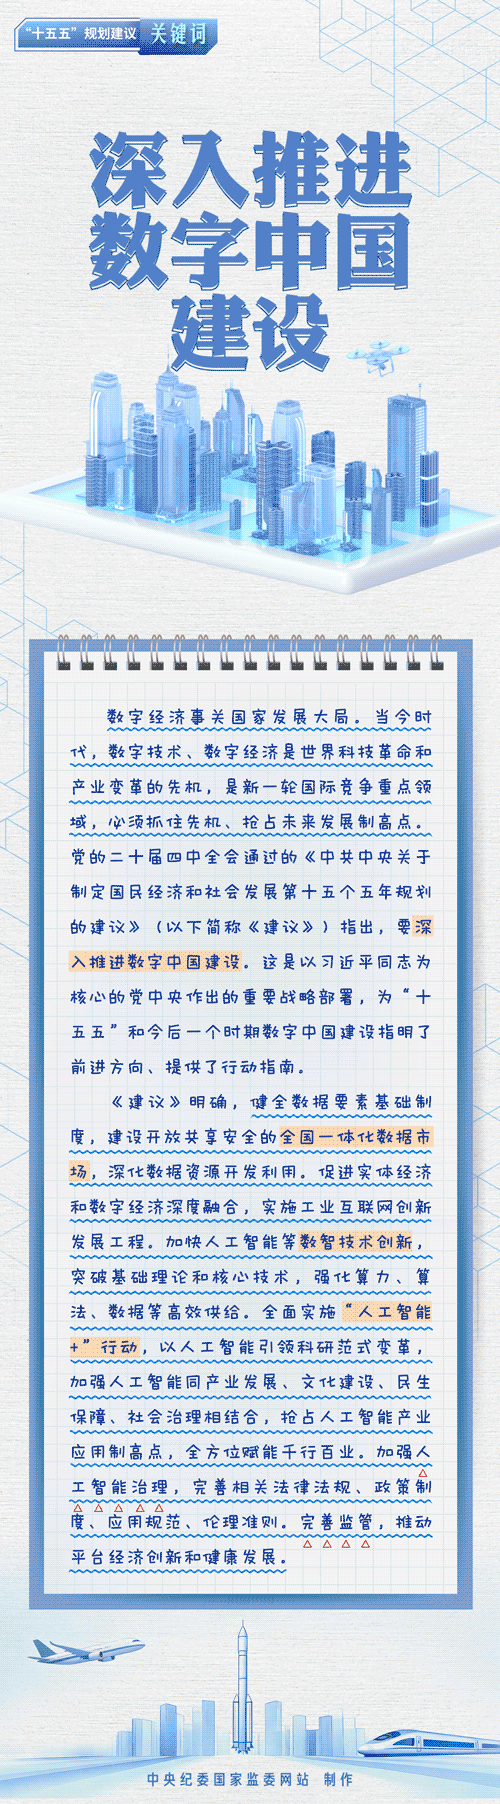 “十五五”规划建议 关键词
深入推进
数字中国
建设
数字经济事关国家发展大局。当今时
代，数字技术、数字经济是世界科技革命和
产业变革的先机，是新一轮国际竞争重点领
域，必须抓住先机、抢占未来发展制高点。
党的二十届四中全会通过的《中共中央关于
制定国民经济和社会发展第十五个五年规划
的建议》（以下简称《建议》）指出，要深
入推进数字中国建设。这是以习近平同志为
核心的党中央作出的重要战略部署，为“十
五五”和今后一个时期数字中国建设指明了
前进方向、提供了行动指南。
《建议》明确，健全数据要素基础制
度，建设开放共享安全的全国一体化数据市
场，深化数据资源开发利用。促进实体经济
和数字经济深度融合，实施工业互联网创新
发展工程。加快人工智能等数智技术创新，
突破基础理论和核心技术，强化算力、算
法、数据等高效供给。全面实施“人工智能
+”行动，以人工智能引领科研范式变革，
加强人工智能同产业发展、文化建设、民生
保障、社会治理相结合，抢占人工智能产业
应用制高点，全方位赋能千行百业。加强人
工智能治理，完善相关法律法规、政策制
度、应用规范、伦理准则。完善监管，推动
平台经济创新和健康发展。
中央纪委国家监委网站 制作